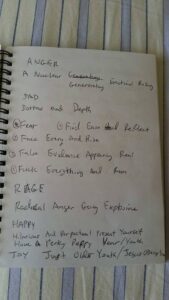 ANGER
A Nuclear Generating Emotional Rising
SAD
Sorrow And Depth
Fear ① Find Ease And Reflect
② Face Every And Rise
③ False Evidence Appearing Real
④ Fuck Everything And Run
RAGE
Radical Anger Going Explosive
HAPPY
Hilarious And Perpetual Present Yourself
Have A Perky Peppy Year/Youth
JOY Just Older Youth/